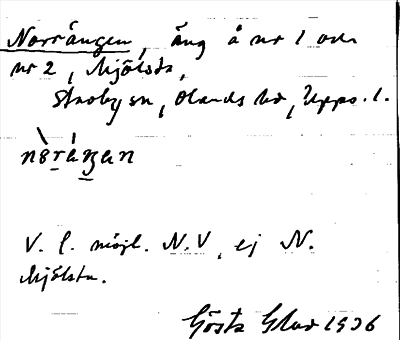 Norrängen, äng å nr 1 och
nr 2, Mjölsta,
Skoby sn, Olands hd, Upps. l.
nòráŋan
V. l. möjl. N.V, ej N.
Mjölsta.
Gösta Glad 1936